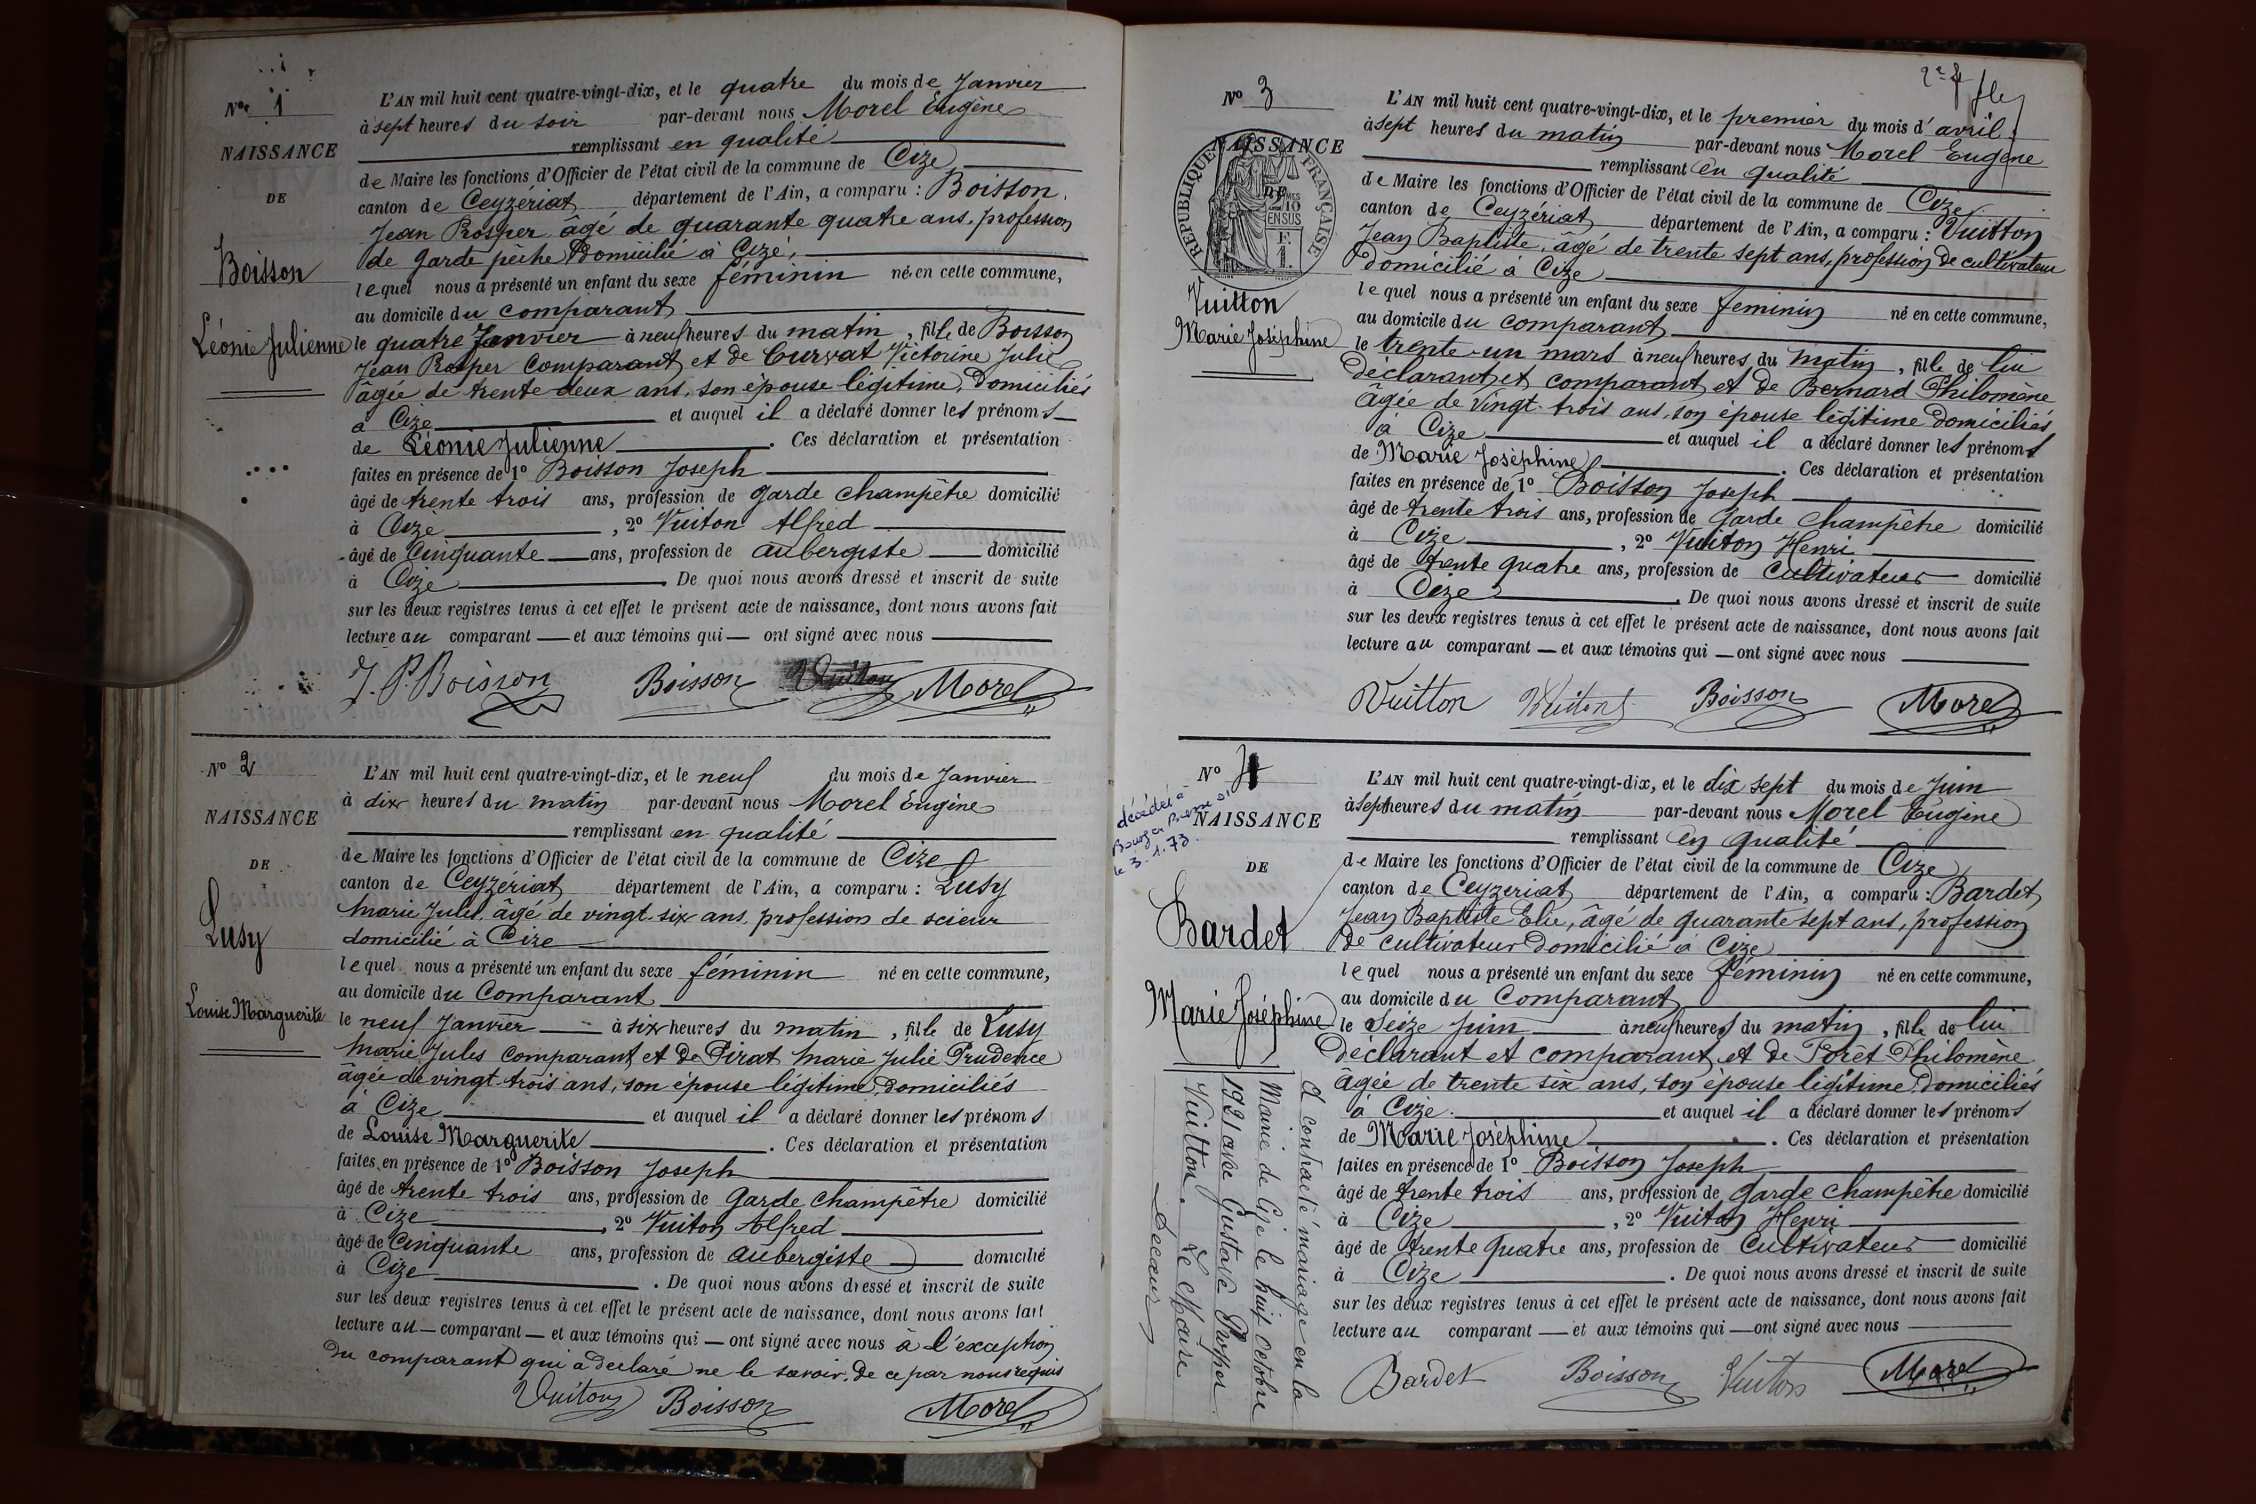 N° 1
NAISSANCE
DE
Boisson
Léonie Julienne
L'AN mil huit cent quatre-vingt-dix, et le quatre du mois de Janvier
à sept heures du soir par-devant nous Morel Eugène
remplissant en qualité
de Maire les fonctions d'Officier de l'état civil de la commune de Cize
canton de Ceyzériat département de l'Ain, a comparu : Boisson
Jean Prosper âgé de quarante quatre ans, profession
de garde pêche Domicilié à Cize,
lequel nous a présenté un enfant du sexe féminin né en cette commune,
au domicile du comparant
le quatre Janvier à neuf heures du matin, fille de Boisson
Jean Prosper comparant et de Curvat Victorine Julie
âgée de trente deux ans, son épouse légitime, Domiciliés
à Cize et auquel il a déclaré donner les prénoms
de Léonie Julienne. Ces déclaration et présentation
faites en présence de 1° Boisson Joseph
âgé de trente trois ans, profession de garde champêtre domicilié
à Cize, 2° Vuiton Alfred
âgé de Cinquante ans, profession de aubergiste domicilié
à Cize. De quoi nous avons dressé et inscrit de suite
sur les deux registres tenus à cet effet le présent acte de naissance, dont nous avons fait
lecture au comparant et aux témoins qui ont signé avec nous
J. P. Boisson Boisson Vuiton Morel
N° 2
NAISSANCE
DE
Lusy
Louise Marguerite
L'AN mil huit cent quatre-vingt-dix, et le neuf du mois de Janvier
à dix heures du matin par-devant nous Morel Eugène
remplissant en qualité
de Maire les fonctions d'Officier de l'état civil de la commune de Cize
canton de Ceyzériat département de l'Ain, a comparu : Lusy
Marie Jules âgé de vingt six ans, profession de scieur
domicilié à Cize
lequel nous a présenté un enfant du sexe féminin né en cette commune,
au domicile du Comparant
le neuf Janvier à six heures du matin, fille de Lusy
Marie Jules comparant et de Pirat Marie Julie Prudence
âgée de vingt trois ans, son épouse légitime, domiciliés
à Cize et auquel il a déclaré donner les prénoms
de Louise Marguerite. Ces déclaration et présentation
faites en présence de 1° Boisson Joseph
âgé de trente trois ans, profession de Garde champêtre domicilié
à Cize, 2° Vuiton Alfred
âgé de Cinquante ans, profession de aubergiste domicilié
à Cize. De quoi nous avons dressé et inscrit de suite
sur les deux registres tenus à cet effet le présent acte de naissance, dont nous avons fait
lecture au comparant et aux témoins qui ont signé avec nous à l'exception
du comparant qui a déclaré ne le savoir, de ce par nous requis
Vuiton Boisson Morel
N° 3
NAISSANCE
DE
RÉPUBLIQUE FRANÇAISE
Vuitton
Marie Joséphine
L'AN mil huit cent quatre-vingt-dix, et le premier du mois d'avril
à sept heures du matin par-devant nous Morel Eugène
remplissant en qualité
de Maire les fonctions d'Officier de l'état civil de la commune de Cize
canton de Ceyzériat département de l'Ain, a comparu : Vuitton
Jean Baptiste, âgé de trente sept ans, profession de cultivateur
domicilié à Cize
lequel nous a présenté un enfant du sexe féminin né en cette commune,
au domicile du comparant
le trente-un mars à neuf heures du matin, fille de lui
déclarant et comparant et de Bernard Philomène
âgée de vingt-trois ans, son épouse légitime domiciliés
à Cize et auquel il a déclaré donner les prénoms
de Marie Joséphine. Ces déclaration et présentation
faites en présence de 1° Boisson Joseph
âgé de trente trois ans, profession de Garde champêtre domicilié
à Cize, 2° Vuiton Henri
âgé de trente quatre ans, profession de cultivateur domicilié
à Cize. De quoi nous avons dressé et inscrit de suite
sur les deux registres tenus à cet effet le présent acte de naissance, dont nous avons fait
lecture au comparant et aux témoins qui ont signé avec nous
Vuitton Vuiton Boisson Morel
N° 4
décédée à
le 3.1.73.
NAISSANCE
DE
Bardet
Marie Joséphine
A contracté mariage en la
Mairie de Cize le huit Octobre
1921 avec Gustave Prosper
Vuitton. Le Maire
L'AN mil huit cent quatre-vingt-dix, et le dix sept du mois de Juin
à sept heures du matin par-devant nous Morel Eugène
remplissant en qualité
de Maire les fonctions d'Officier de l'état civil de la commune de Cize
canton de Ceyzeriat département de l'Ain, a comparu : Bardet
Jean Baptiste Elie, âgé de quarante sept ans, profession
de cultivateur domicilié à Cize
lequel nous a présenté un enfant du sexe féminin né en cette commune,
au domicile du Comparant
le Seize Juin à neuf heures du matin, fille de lui
déclarant et comparant et de Forêt Philomène
âgée de trente six ans, son épouse légitime, domiciliés
à Cize. et auquel il a déclaré donner les prénoms
de Marie Joséphine. Ces déclaration et présentation
faites en présence de 1° Boisson Joseph
âgé de trente trois ans, profession de Garde Champêtre domicilié
à Cize, 2° Vuiton Henri
âgé de trente quatre ans, profession de Cultivateur domicilié
à Cize. De quoi nous avons dressé et inscrit de suite
sur les deux registres tenus à cet effet le présent acte de naissance, dont nous avons fait
lecture au comparant et aux témoins qui ont signé avec nous
Bardet Boisson Vuiton Morel